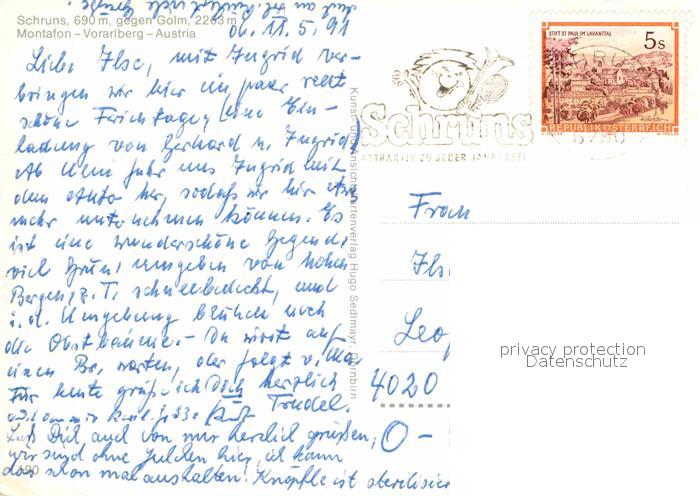 Schruns, 690 m, gegen Golm, 2263 m
Montafon – Vorarlberg – Austria
11.5.91
Liebe Ilse, mit Ingrid ver-
bringen wir hier ein paar recht
schöne Ferientage, eine Ein-
ladung von Gerhard u. Ingrid
Ingrid mit
dem Auto her, sodaß wir hier
mehr unternehmen können. Es
ist eine wunderschöne Gegend,
viel Grün, umgeben von hohen
Bergen, z. T. schneebedeckt, und
i. d. Umgebung blühen noch
die Obstbäume. – Du wirst auf
einen Br. warten, der folgt
Für heute grüß ich Dich herzlich
Trudel.
Laß Dich auch von mir herzlich grüßen,
wir sind ohne hier, ich kann
das schon mal aushalten! Knöpfle ist sterilisier
190
Kunst- und Ansichtskartenverlag Hugo Sedlmayr, Dornbirn
Schruns
ATTRAKTIV ZU JEDER JAHRESZEIT
STIFT ST. PAUL IM LAVANTTAL
5 S
REPUBLIK ÖSTERREICH
Frau
Ils
Leo
4020
O –
privacy protection
Datenschutz